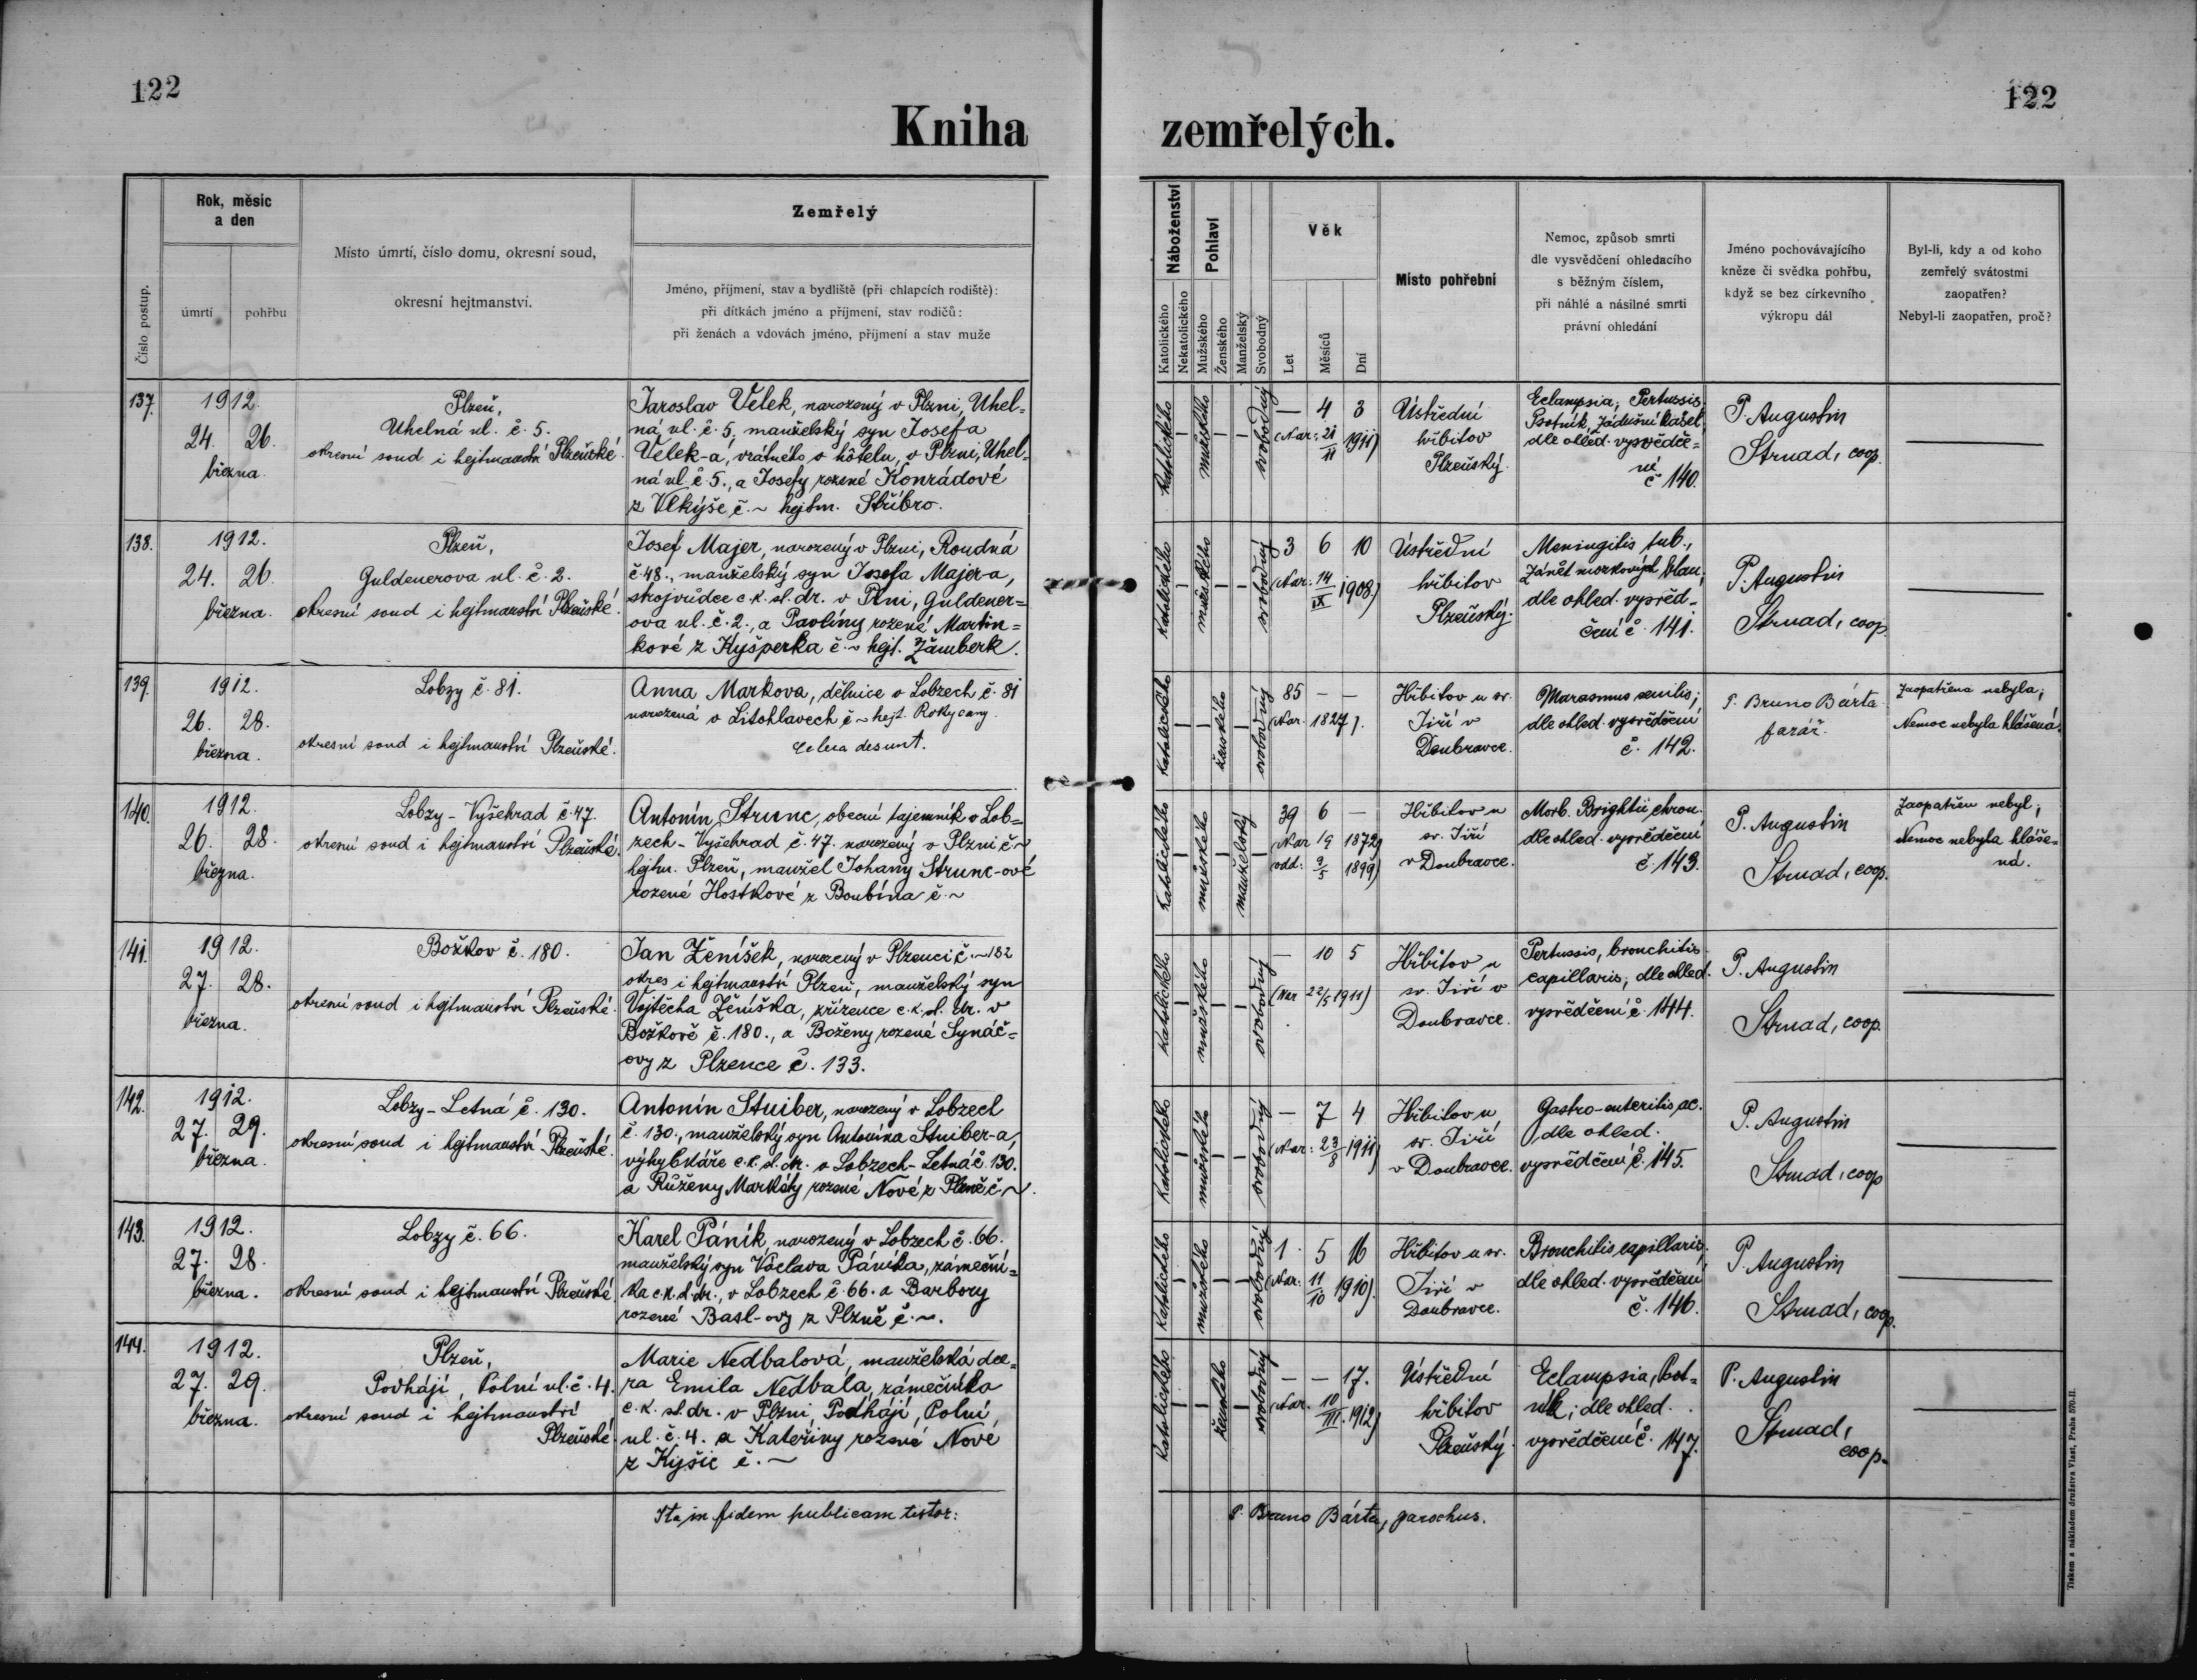 122
122
Kniha zemřelých.
Číslo postup.
Rok, měsíc
a den
úmrtí
pohřbu
Místo úmrtí, číslo domu, okresní soud,
okresní hejtmanství.
Zemřelý
Jméno, příjmení, stav a bydliště (při chlapcích rodiště):
při dítkách jméno a příjmení, stav rodičů:
při ženách a vdovách jméno, příjmení a stav muže
Náboženství
Katolického
Nekatolického
Pohlaví
Mužského
Ženského
Manželský
Svobodný
Věk
Let
Měsíců
Dní
Místo pohřební
Nemoc, způsob smrti
dle vysvědčení ohledacího
s běžným číslem,
při náhlé a násilné smrti
právní ohledání
Jméno pochovávajícího
kněze či svědka pohřbu,
když se bez církevního
výkropu dál
Byl-li, kdy a od koho
zemřelý svátostmi
zaopatřen?
Nebyl-li zaopatřen, proč?
137.
1912.
24. 26.
března.
Plzeň,
Uhelná ul. č. 5.
okresní soud i hejtmanství Plzeňské.
Jaroslav Velek, narozený v Plzni, Uhel=
ná ul. č. 5, manželský syn Josefa
Velek-a, vrátného v hôtelu, v Plzni, Uhel=
ná ul. č. 5., a Josefy rozené Konrádové
z Vlkýše č. ~ hejtm. Stříbro.
katolického
mužského
svobodný
— 4 3
(Nar. 21/11 1911)
Ústřední
hřbitov
Plzeňský.
Eclampsia, Pertussis,
Psotník, Zádušní kašel,
dle ohled. vysvědče=
ní
č 140.
P. Augustin
Strnad, coop.
138.
1912.
24. 26.
března.
Plzeň,
Guldenerova ul. č. 2.
okresní soud i hejtmanství Plzeňské.
Josef Majer, narozený v Plzni, Roudná
č. 48., manželský syn Josefa Majer-a,
strojvůdce c. k. st. dr. v Plzni, Guldener=
ova ul. č. 2., a Pavlíny rozené Martin=
kové z Kyšperka č. ~ hejt. Žamberk.
katolického
mužského
svobodný
3 6 10
(Nar. 14/IX 1908.)
Ústřední
hřbitov
Plzeňský.
Meningitis tub.,
Zánět mozkových blan,
dle ohled. vysvěd=
čení č. 141.
P. Augustin
Strnad, coop.
139.
1912.
26. 28.
března.
Lobzy č. 81.
okresní soud i hejtmanství Plzeňské.
Anna Markova, dělnice v Lobzech č. 81
narozená v Litohlavech č ~ hejt. Rokycany.
Cetera desunt.
katolického
ženského
svobodný
85 — —
(Nar. 1827).
Hřbitov u sv.
Jiří v
Doubravce.
Marasmus senilis;
dle ohled. vysvědčení
č. 142.
P. Bruno Bárta
farář.
Zaopatřena nebyla;
Nemoc nebyla hlášená.
140.
1912.
26. 28.
března.
Lobzy - Vyšehrad č. 47.
okresní soud i hejtmanství Plzeňské.
Antonín Strunc, obecní tajemník v Lob=
zech - Vyšehrad č. 47. narozený v Plzni č ~
hejtm. Plzeň, manžel Johany Strunc-ové
rozené Hostkové z Boubína č. ~
katolického
mužského
manželský
39 6 —
(Nar 1/9 1872)
odd: 2/5 1899)
Hřbitov u
sv. Jiří
v Doubravce.
Morb. Brightii chron.
dle ohled. vysvědčení
č. 143.
P. Augustin
Strnad, coop.
Zaopatřen nebyl;
Nemoc nebyla hláše=
ná.
141.
1912.
27. 28.
března.
Božkov č. 180.
okresní soud i hejtmanství Plzeňské.
Jan Ženíšek, narozený v Plzenci č. ~ 182
okres i hejtmanství Plzeň, manželský syn
Vojtěcha Ženíška, zřízence c. k. st. dr. v
Božkově č. 180., a Boženy rozené Synáč=
ovy z Plzence č. 133.
katolického
mužského
svobodný
— 10 5
(Nar 22/5 1911)
Hřbitov u
sv. Jiří v
Doubravce.
Pertussis, bronchitis
capillaris, dle ohled.
vysvědčení č. 144.
P. Augustin
Strnad, coop.
142.
1912.
27. 29.
března.
Lobzy - Letná č. 130.
okresní soud i hejtmanství Plzeňské.
Antonín Stuiber, narozený v Lobzech
č. 130., manželský syn Antonína Stuiber-a,
výhybkáře c. k. st. dr. v Lobzech - Letná č. 130.
a Růženy Markéty rozené Nové z Plzně č. ~.
katolického
mužského
svobodný
— 7 4
(Nar. 23/8 1911)
Hřbitov u
sv. Jiří
v Doubravce.
Gastro-enteritis ac.
dle ohled.
vysvědčení č. 145.
P. Augustin
Strnad, coop
143.
1912.
27. 28.
března.
Lobzy č. 66.
okresní soud i hejtmanství Plzeňské.
Karel Páník, narozený v Lobzech č. 66.
manželský syn Václava Páníka, zámeční=
ka c. k. d. dr., v Lobzech č. 66. a Barbory
rozené Basl-ovy z Plzně č. ~.
katolického
mužského
svobodný
1 5 16
(Nar. 11/10 1910).
Hřbitov u sv.
Jiří v
Doubravce.
Bronchitis capillaris,
dle ohled. vysvědčení
č. 146.
P. Augustin
Strnad, coop.
144.
1912.
27. 29.
března.
Plzeň,
Podhájí, Polní ul. č. 4.
okresní soud i hejtmanství
Plzeňské.
Marie Nedbalová, manželská dce=
ra Emila Nedbala, zámečníka
c. k. st. dr. v Plzni, Podhájí, Polní
ul. č. 4. a Kateřiny rozené Nové
z Kyšic č. ~
katolického
ženského
svobodný
— — 17.
(Nar. 10/III. 1912)
Ústřední
hřbitov
Plzeňský.
Eclampsia, Psot=
ník; dle ohled.
vysvědčení č. 147.
P. Augustin
Strnad,
coop.
Ita in fidem publicam testor:
P. Bruno Bárta, parochus.
Tiskem a nákladem družstva Vlast, Praha 570-II.